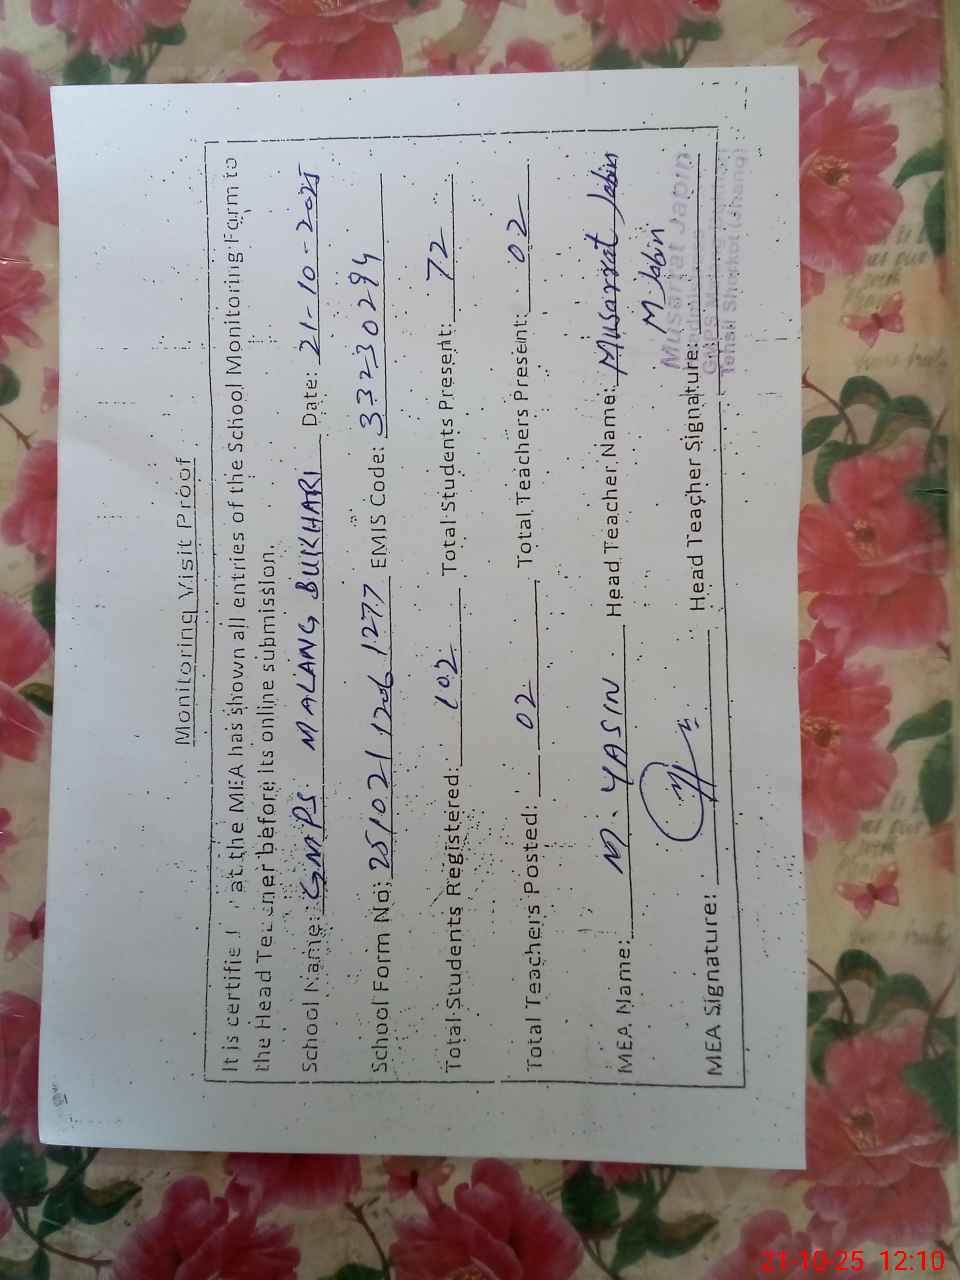 Monitoring Visit Proof
It is certified that the MEA has shown all entries of the School Monitoring Form to
the Head Teacher before its online submission.
School Name: GMPS MALANG BUKHARI Date: 21-10-2025
School Form No: 251021 1206 1277 EMIS Code: 33230294
Total Students Registered: 102 Total Students Present: 72
Total Teachers Posted: 02 Total Teachers Present: 02
MEA Name: M. YASIN Head Teacher Name: Musarrat Jabin
M Jabin
MEA Signature: Head Teacher Signature:
Musarrat Jabin
21-10-25 12:10